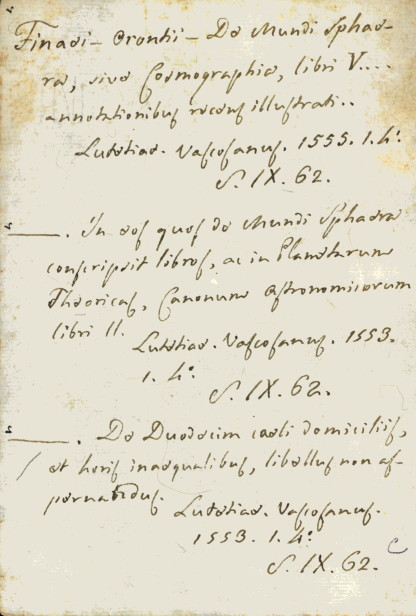 Finaei - Orontii - De Mundi Sphae-
ra, sive Cosmographia, libri V....
annotationibus recens illustrati..
Lutetiae. Vascosanus. 1555. 1. 4°.
S. IX. 62.
———. In eos quos de Mundi Sphaera
conscripsit libros, ac in Planetarum
Theoricas, Canonum Astronomicorum
libri II. Lutetiae. Vascosanus. 1553.
1. 4°.
S. IX. 62.
———. De Duodecim caeli domiciliis,
et horis inaequalibus, libellus non as-
pernandus. Lutetiae. Vascosanus.
1553. 1. 4°.
S. IX. 62.